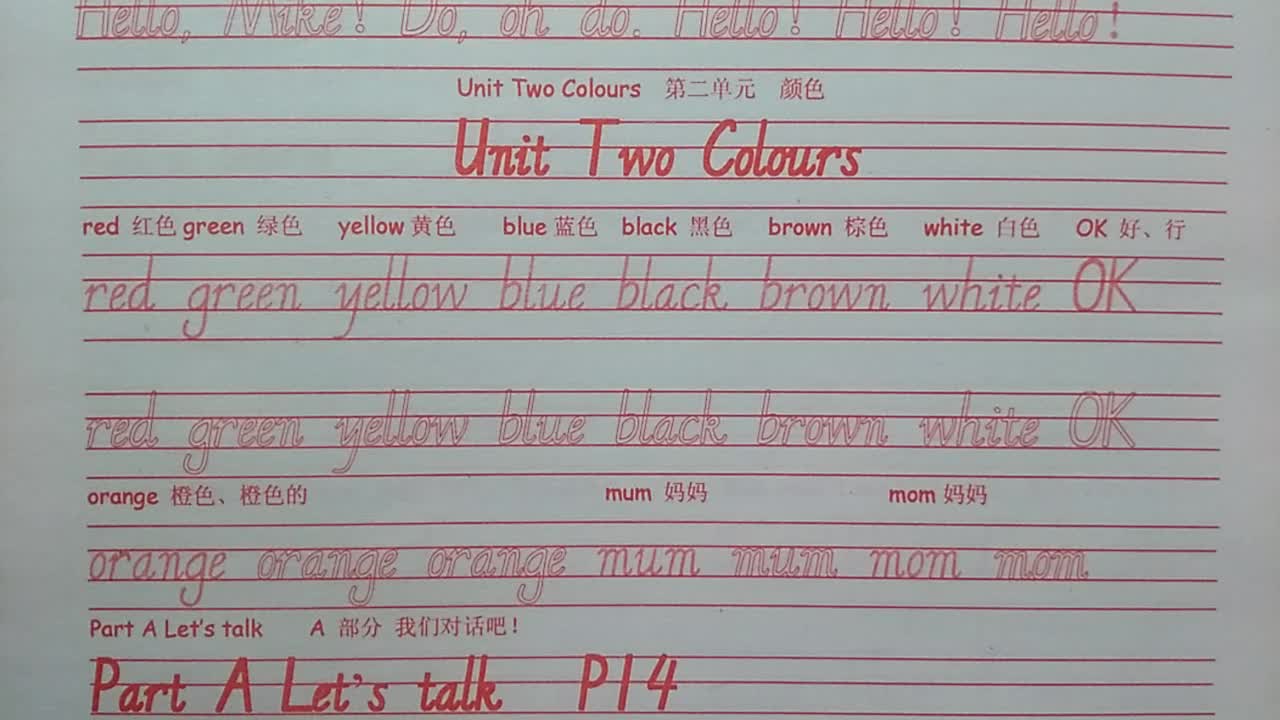 Hello, Mike! Do, oh do. Hello! Hello! Hello!
Unit Two Colours 第二单元 颜色
Unit Two Colours
red 红色 green 绿色 yellow 黄色 blue 蓝色 black 黑色 brown 棕色 white 白色 OK 好、行
red green yellow blue black brown white OK
red green yellow blue black brown white OK
orange 橙色、橙色的 mum 妈妈 mom 妈妈
orange orange orange mum mum mom mom
Part A Let's talk A 部分 我们对话吧!
Part A Let's talk P14